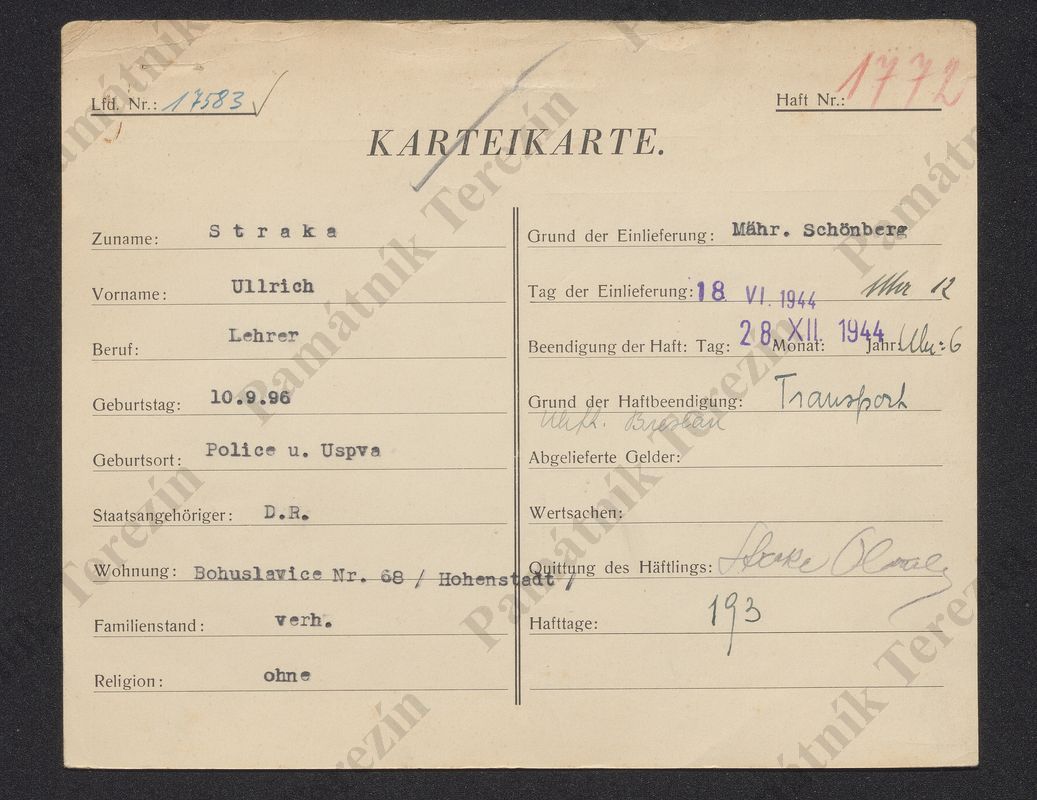 Lfd. Nr.: 17583
Haft Nr.: 1772
KARTEIKARTE.
Zuname: Straka
Vorname: Ullrich
Beruf: Lehrer
Geburtstag: 10.9.96
Geburtsort: Police u. Uspva
Staatsangehöriger: D.R.
Wohnung: Bohuslavice Nr. 68 / Hohenstadt /
Familienstand: verh.
Religion: ohne
Grund der Einlieferung: Mähr. Schönberg
Tag der Einlieferung: 18 VI. 1944 Uhr 12
Beendigung der Haft: Tag: 28 Monat: XII. Jahr: 1944 Uhr: 6
Grund der Haftbeendigung: Transport
Breslau
Abgelieferte Gelder:
Wertsachen:
Quittung des Häftlings:
Hafttage: 193
Památník Terezín